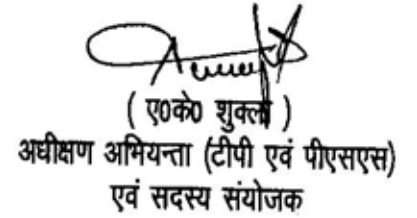 ( ए0के0 शुक्ला )
अधीक्षण अभियन्ता (टीपी एवं पीएसएस)
एवं सदस्य संयोजक